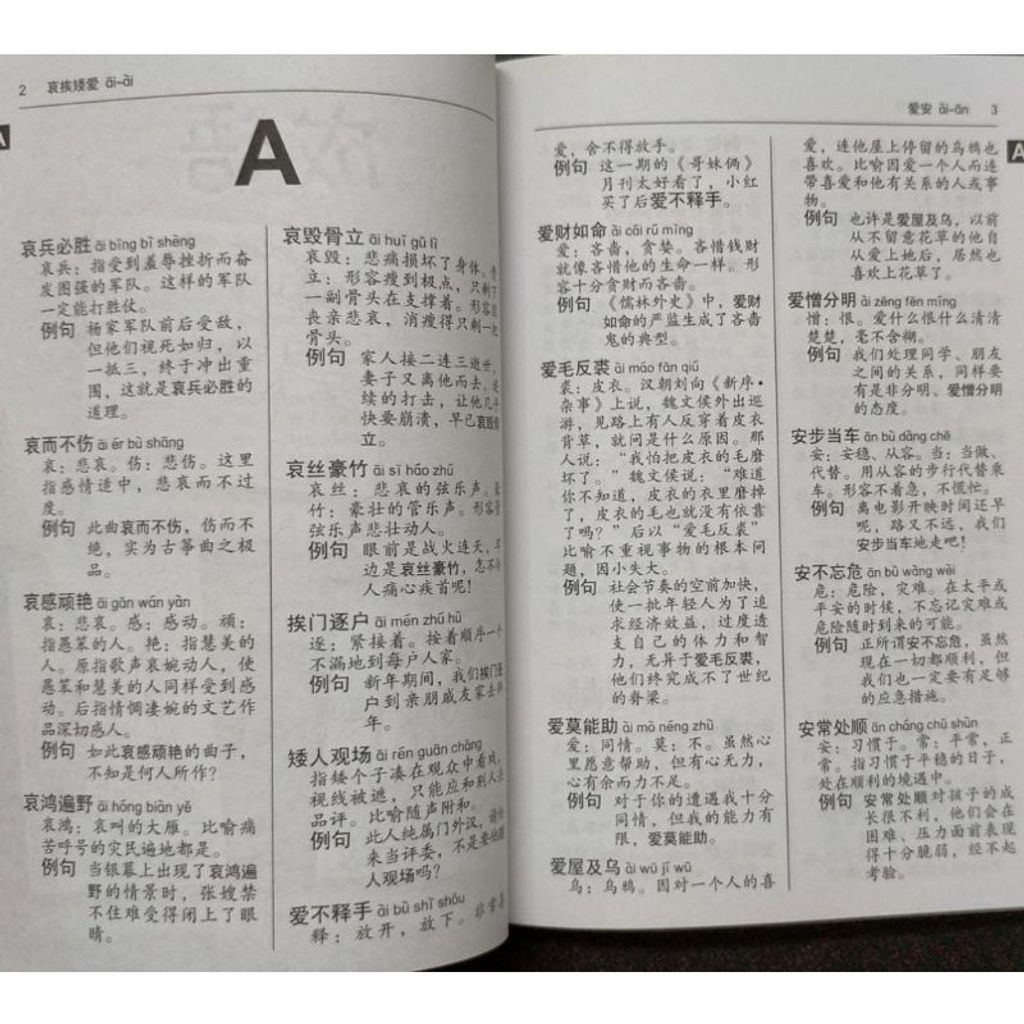 2 哀挨矮爱 āi-ài
A
A
哀兵必胜 āi bīng bì shèng
哀兵：指受到羞辱挫折而奋
发图强的军队。这样的军队
一定能打胜仗。
例句 杨家军队前后受敌，
但他们视死如归，以
一抵三，终于冲出重
围，这就是哀兵必胜的
道理。
哀而不伤 āi ér bù shāng
哀：悲哀。伤：悲伤。这里
指感情适中，悲哀而不过
度。
例句 此曲哀而不伤，伤而不
绝，实为古筝曲之极
品。
哀感顽艳 āi gǎn wán yàn
哀：悲哀。感：感动。顽：
指愚笨的人。艳：指慧美的
人。原指歌声哀婉动人，使
愚笨和慧美的人同样受到感
动。后指情惆凄婉的文艺作
品深切感人。
例句 如此哀感顽艳的曲子，
不知是何人所作？
哀鸿遍野 āi hóng biàn yě
哀鸿：哀叫的大雁。比喻痛
苦呼号的灾民遍地都是。
例句 当银幕上出现了哀鸿遍
野的情景时，张嫂禁
不住难受得闭上了眼
睛。
哀毁骨立 āi huǐ gǔ lì
哀毁：悲痛损坏了身体。骨
立：形容瘦到极点，只剩下
一副骨头在支撑着。形容因
丧亲悲哀，消瘦得只剩一把
骨头。
例句 家人接二连三逝世，
妻子又离他而去，连
续的打击，让他几乎
快要崩溃，早已哀毁骨
立。
哀丝豪竹 āi sī háo zhú
哀丝：悲哀的弦乐声。豪
竹：豪壮的管乐声。形容管
弦乐声悲壮动人。
例句 眼前是战火连天，耳
边是哀丝豪竹，怎不令
人痛心疾首呢！
挨门逐户 āi mén zhú hù
逐：紧接着。按着顺序一个
不漏地到每户人家。
例句 新年期间，我们挨门逐
户到亲朋戚友家去拜
年。
矮人观场 ǎi rén guān chǎng
指矮个子凑在观众中看戏，
视线被遮，只能应和别人
品评。比喻随声附和。
例句 此人纯属门外汉，请他
来当评委，不是要他矮
人观场吗？
爱不释手 ài bù shì shǒu
释：放开，放下。非常喜
爱安 ài-ān 3
爱，舍不得放手。
例句 这一期的《哥妹俩》
月刊太好看了，小红
买了后爱不释手。
爱财如命 ài cái rú mìng
爱：吝啬，贪婪。吝惜钱财
就像吝惜他的生命一样。形
容十分贪财而吝啬。
例句 《儒林外史》中，爱财
如命的严监生成了吝啬
鬼的典型。
爱毛反裘 ài máo fǎn qiú
裘：皮衣。汉朝刘向《新序·
杂事》上说，魏文侯外出巡
游，见路上有人反穿着皮衣
背草，就问是什么原因。那
人说：“我怕把皮衣的毛磨
坏了。”魏文侯说：“难道
你不知道，皮衣的衣里磨掉
了，皮衣的毛也就没有依靠
了吗？”后以“爱毛反裘”
比喻不重视事物的根本问
题，因小失大。
例句 社会节奏的空前加快，
使一批年轻人为了追
求经济效益，过度透
支自己的体力和智
力，无异于爱毛反裘，
他们终究成不了世纪
的脊梁。
爱莫能助 ài mò néng zhù
爱：同情。莫：不。虽然心
里愿意帮助，但有心无力，
心有余而力不足。
例句 对于你的遭遇我十分
同情，但我的能力有
限，爱莫能助。
爱屋及乌 ài wū jí wū
乌：乌鸦。因对一个人的喜
爱，连他屋上停留的乌鸦也
喜欢。比喻因爱一个人而连
带喜爱和他有关系的人或事
物。
例句 也许是爱屋及乌，以前
从不留意花草的他自
从爱上她后，居然也
喜欢上花草了。
爱憎分明 ài zēng fēn míng
憎：恨。爱什么恨什么清清
楚楚，毫不含糊。
例句 我们处理同学、朋友
之间的关系，同样要
有是非分明、爱憎分明
的态度。
安步当车 ān bù dàng chē
安：安稳、从容。当：当做、
代替。用从容的步行代替乘
车。形容不着急，不慌忙。
例句 离电影开映时间还早
呢，路又不远，我们
安步当车地走吧！
安不忘危 ān bù wàng wēi
危：危险，灾难。在太平或
平安的时候，不忘记灾难或
危险随时到来的可能。
例句 正所谓安不忘危，虽然
现在一切都顺利，但
我们也一定要有足够
的应急措施。
安常处顺 ān cháng chǔ shùn
安：习惯于。常：平常，正
常。指习惯于平稳的日子，
处在顺利的境遇中。
例句 安常处顺对孩子的成
长很不利，他们会在
困难、压力面前表现
得十分脆弱，经不起
考验。
A